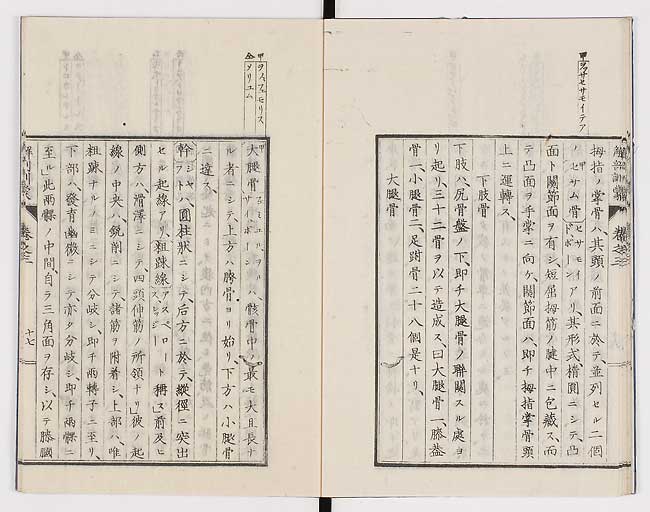 甲ヲッサセサモイテア
拇指ノ掌骨ハ其頭ノ前面ニ於テ、並列セル二個
ノセサム骨セサモイドボーンアリ、其形式橢圓ニシテ、凸
面ト關節面ヲ有シ、短屈拇筋ノ腱中ニ包藏ス、而
テ凸面ヲ手掌ニ向ケ、關節面ハ、即チ拇指掌骨頭
上ニ運轉ス、
下肢骨
下肢ハ、尻骨盤ノ下、即チ大腿骨ノ聯關スル處ヨ
リ起リ、三十二骨ヲ以テ造成ス、曰大腿骨一、膝蓋
骨一、小腿骨二、足跗骨二十八個是ナリ、
大腿骨
甲ヲスフェモリス
大腿骨ハ、骸骨中ノ最モ大且長ナ
ル者ニシテ、上方ハ胯骨ヨリ始リ、下方ハ小腿骨
ニ達ス、
幹シャフトハ、圓柱狀ニシテ、后方ニ於テ、縱徑ニ突出
セル起線アリ、粗踈線アスペロートリッジート稱ス、前及ヒ
側方ハ、滑澤ニシテ四頭伸筋ノ所領ナリ、彼ノ起
線ノ中央ハ、銳削ニシテ、諸筋ヲ附着シ、上部ハ、唯
粗踈ナルノミニシテ分岐シ、即チ兩轉子ニ至リ、
下部ハ、發育幽微ニシテ、亦タ分岐シ、即チ兩髁ニ
至ル、此兩髁ノ中間、自ラ三角面ヲ存シ、以テ膝膕
卷之三
十七